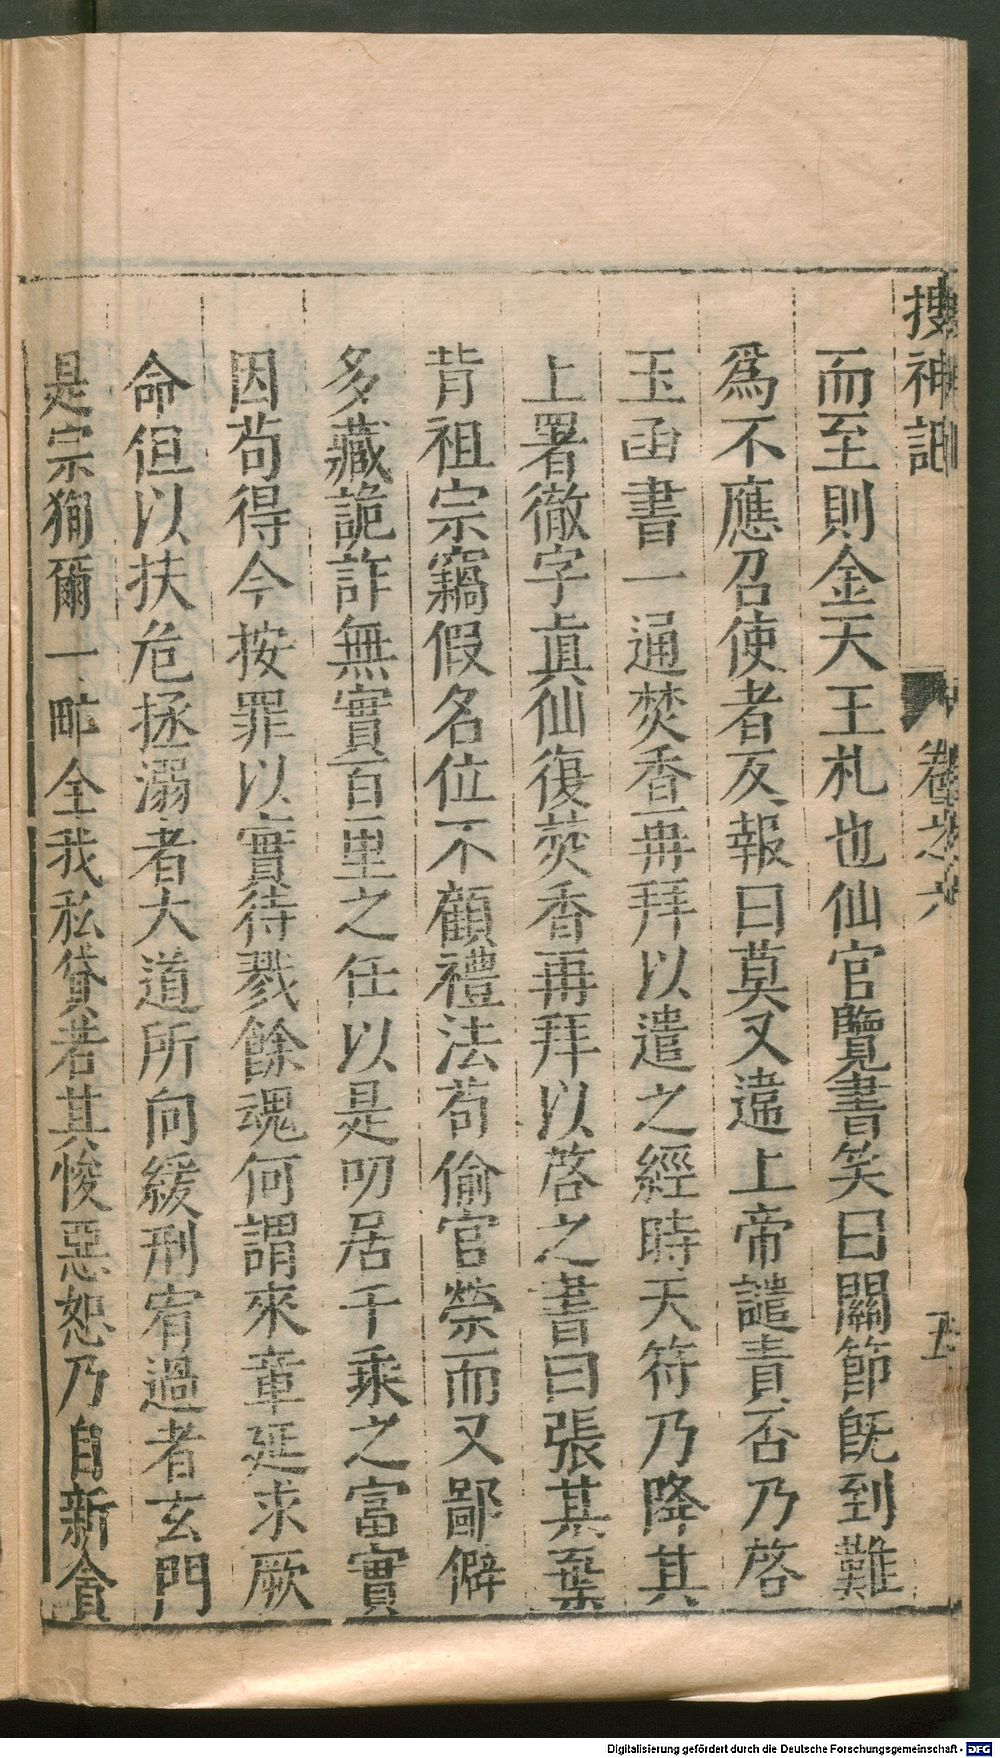 搜神記 卷之六 五
而至則金天王札也仙官覽書笑曰關節既到難
爲不應召使者反報曰莫又違上帝譴責否乃啓
玉函書一通焚香再拜以遣之經時天符乃降其
上署徹字真仙復焚香再拜以啓之書曰張某棄
背祖宗竊假名位不顧禮法苟偷官榮而又鄙僻
多藏詭詐無實百里之任以是叨居千乘之富實
因苟得今按罪以實待戮餘魂何謂來章延求厥
命但以扶危拯溺者大道所向緩刑宥過者玄門
是宗狥爾一甿全我私貸若其悛惡恕乃自新貪
Digitalisierung gefördert durch die Deutsche Forschungsgemeinschaft - DFG